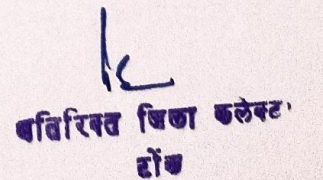 अतिरिक्त जिला कलेक्टर
टोंक